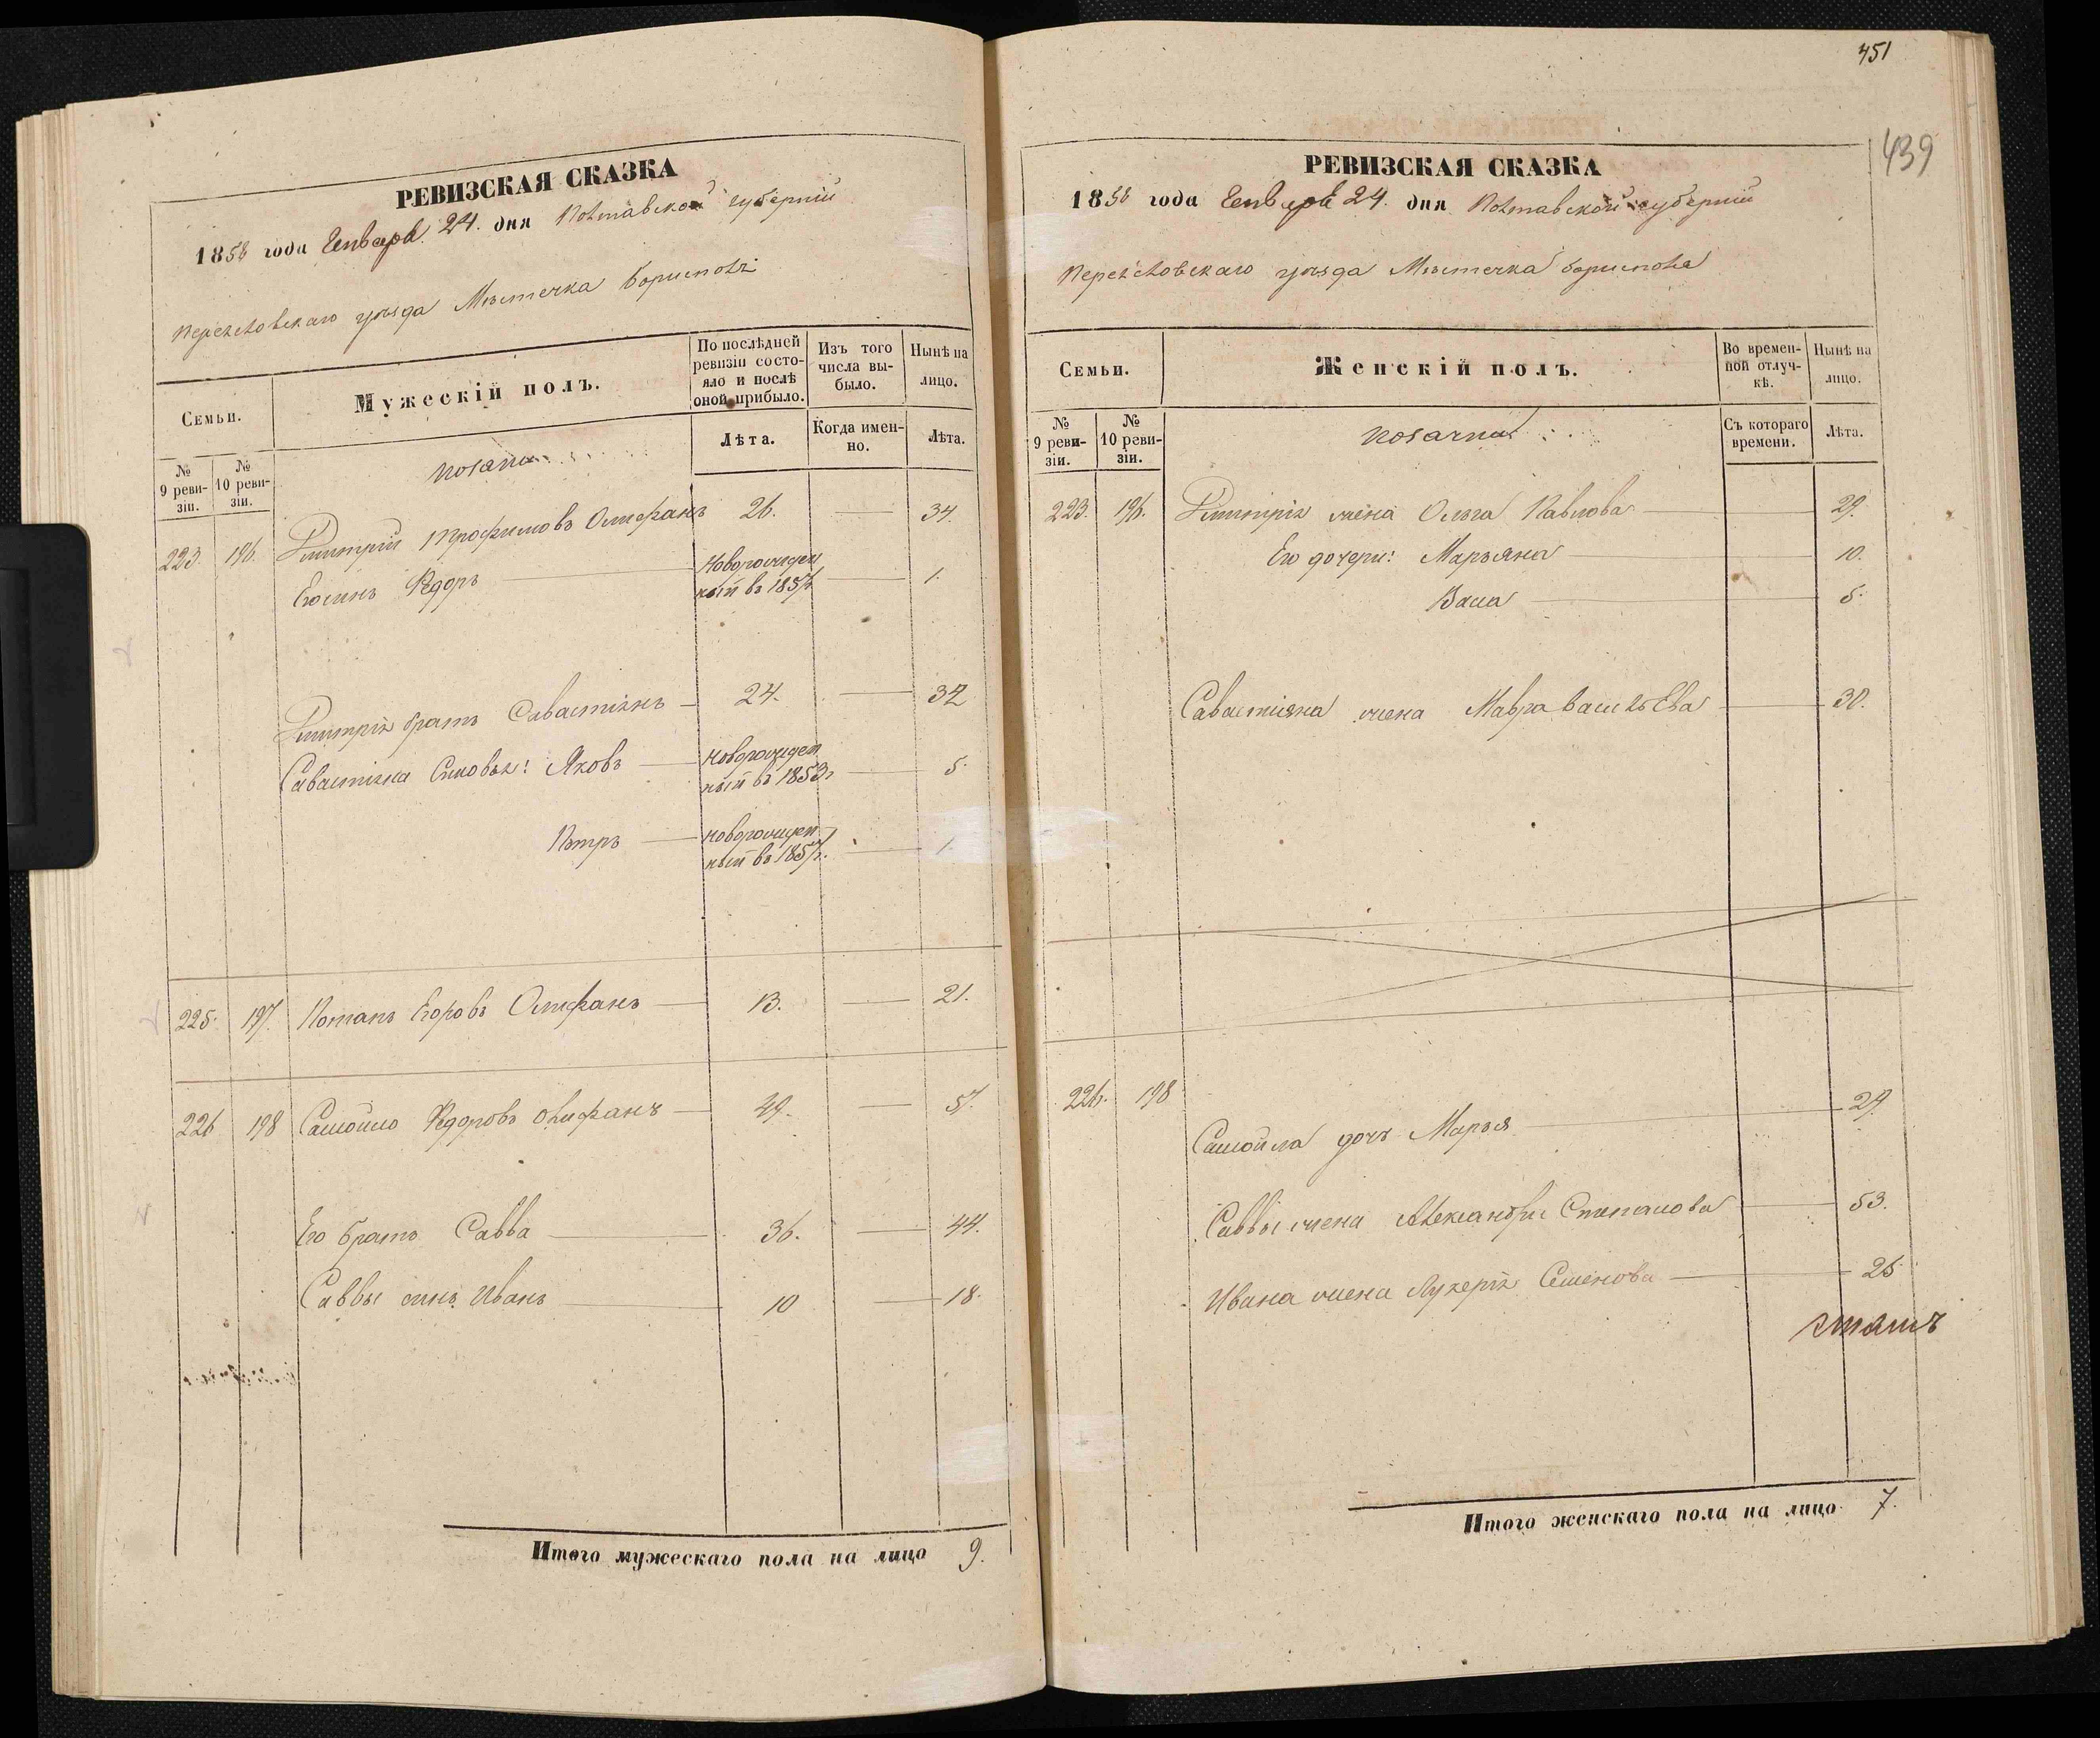 451
439
РЕВИЗСКАЯ СКАЗКА
1858 года Генваря 24. дня Полтавской губернии
Переяславскаго уѣзда Мѣстечка Борисполя
Семьи.
Мужескій полъ.
По послѣдней ревизіи состояло и послѣ оной прибыло.
Изъ того числа выбыло.
Нынѣ на лицо.
№ 9 ревизіи.
№ 10 ревизіи.
Лѣта.
Когда именно.
Лѣта.
223. 196. Дмитрій Трофимовъ Олифанъ 26. — 34.
Его сынъ Федоръ — Новорожденный въ 1857г. — 1.
Дмитрія братъ Савастіянъ — 24. — 32
Савастіяна Сыновья: Яковъ — новорожденный въ 1853г. — 5.
Петръ — новорожденный въ 1857г. — 1.
225. 197. Потапъ Егоровъ Олифанъ — 13. — 21.
226 198 Самойло Федоровъ Олифанъ — 49. — 57.
Его братъ Савва — 36. — 44.
Саввы сынъ Иванъ — 10 — 18.
Итого мужескаго пола на лицо 9.
РЕВИЗСКАЯ СКАЗКА
1858 года Генваря 24. дня Полтавской губернии
Переяславскаго уѣзда Мѣстечка Борисполя
Семьи.
Женскій полъ.
Во временной отлучкѣ.
Нынѣ на лицо.
№ 9 ревизіи.
№ 10 ревизіи.
Съ котораго времени.
Лѣта.
223. 196. Дмитрія жена Ольга Павлова — 29.
Его дочери: Марьяна — 10.
Васа — 5.
Савастіяна жена Мавра Васильева — 30.
226. 198
Самойла дочь Марья — 29.
Саввы жена Александра Степанова — 53.
Ивана жена Лукерія Семенова — 25
Итого женскаго пола на лицо 7.